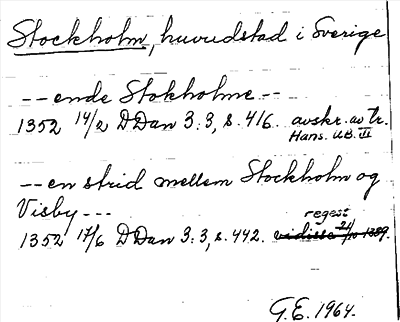 Stockholm, huvudstad i Sverige
--ende Stokholme--
1352 14/2 DDan 3:3, s. 416. avskr. av tr.
Hans. UB. III
--en strid mellem Stockholm og
Visby---
regest
1352 17/6 DDan 3:3, s. 442. vidisse 21/10 1389.
G.E. 1964.